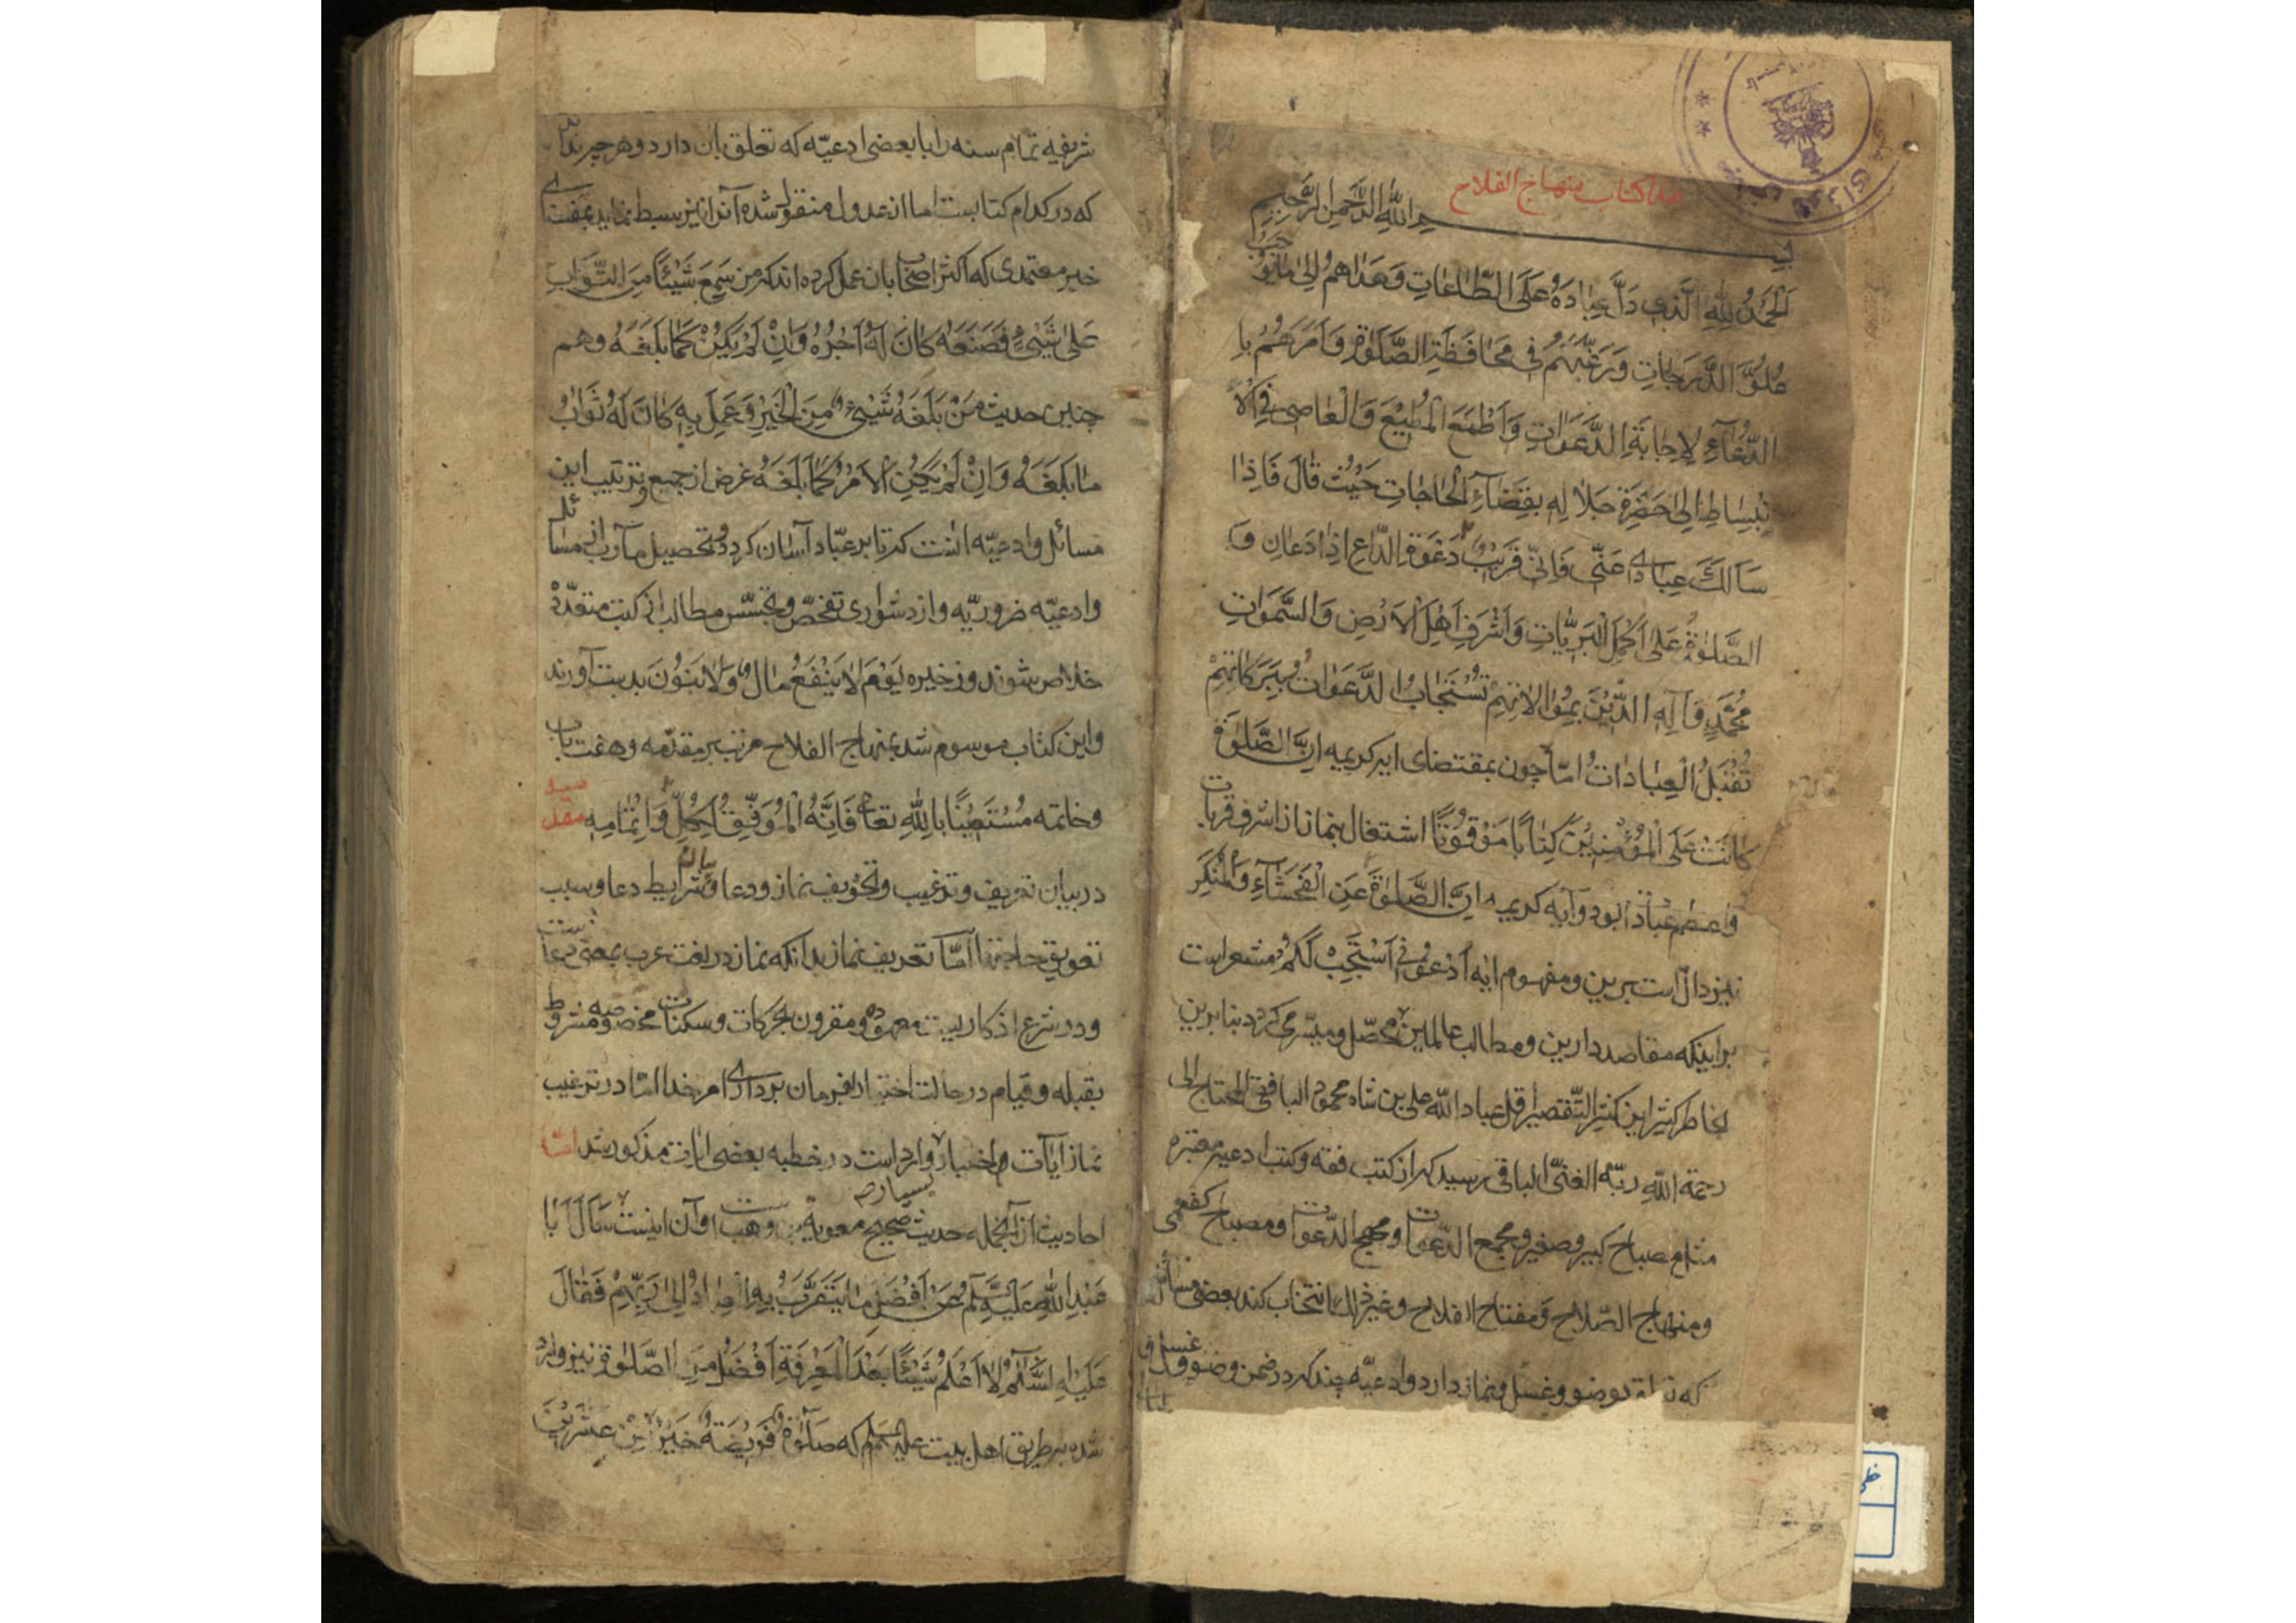 هذا كتاب منهاج الفلاح
بسم الله الرحمن الرحيم
اَلْحَمْدُ لِلّٰهِ الَّذِي دَلَّ عِبَادَهُ عَلَى الطَّاعَاتِ وَهَدٰاهُمْ اِلىٰ مٰا يُوجِبُ
عُلُوَّ الدَّرَجَاتِ وَرَغَّبَهُمْ فِي مُحَافَظَةِ الصَّلَوٰةِ وَاَمَرَهُمْ بِا
الدُّعَآءِ لِاِجَابَةِ الدَّعَوَاتِ وَاَطْمَعَ الْمُطِيْعَ وَالْعٰاصِي فِي الْاِ
نْبِسٰاطِ اِلىٰ حَضْرَةِ جَلٰالِهِ بِقَضٰآءِ الْحٰاجٰاتِ حَيْثُ قٰالَ فَاِذٰا
سَاَلَكَ عِبٰادِي عَنّي فَاِنّي قَرِيْبٌ دَعْوَةَ الدّٰاعِ اِذٰا دَعٰانِ وَ
الصَّلٰوةُ عَلىٰ اَكْمَلِ الْبَرِيّٰاتِ وَاَشْرَفِ اَهْلِ الْاَرْضِ وَالسَّمَوٰاتِ
مُحَمَّدٍ وَآلِهِ الَّذِيْنَ بِمُوٰالاٰتِهِمْ تُسْتَجٰابُ الدَّعَوٰاتُ وَبِبَرَكٰاتِهِمْ
تُقْبَلُ الْعِبٰادٰاتُ امّا چون بمقتضاى ايه كريمه اِنَّ الصَّلٰوةَ
كٰانَتْ عَلَى الْمُؤْمِنِيْنَ كِتٰابًا مَوْقُوتًا اشتغال بنماز از اشرف قربات
واعظم عبادات بود وآيه كريمه اِنَّ الصَّلوٰةَ عَنِ الْفَحْشٰآءِ وَالْمُنْكَرِ
نيز دالّ است برين ومفهوم ايه اُدْعُونِي اَسْتَجِبْ لَكُمْ مشعر است
براينكه مقاصد دارين ومطالب عالمين محصّل وميسّر مى كردد بنابرين
بخاطر كثير اين كثير التّقصير اقل عباد الله على بن شاه محمود البافقى المحتاج الى
رحمة الله ربّه الغنىّ الباقى رسيد كه از كتب فقه وكتب ادعيه معتبره
مثل مصباح كبير وصغير ومجمع الدّعوات ومهج الدّعوات ومصباح كفعمى
ومنهاج الصّلاح ومفتاح الفلاح وغير ذلك انتخاب كند بعضى مسائل
كه بوضو وغسل ونماز دارد وادعيّه چند كه در ضمن وضو وغسل و
شريفه تمام سنه را با بعضى ادعيّه كه تعلق بآن دارد وهر چيز
كه در كدام كتابست اما از عدول منقول شده آنرا نيز بسط نمايد بمقتضاى
خبر معتمدى كه اكثر اصحاب بان عمل كرده اند كه من سَمِعَ شَيْئًا مِنَ الثَّوٰابِ
عَلىٰ شَيْئٍ فَصَنَعَهُ كٰانَ لَهُ اَجْرُهُ وَاِنْ لَمْ يَكُنْ كَمٰا بَلَغَهُ وهم
چنين حديث مَنْ بَلَغَهُ شَيْئٌ مِنَ الْخَيْرِ وَعَمِلَ بِهِ كٰانَ لَهُ ثَوٰابُ
مٰا بَلَغَهُ وَاِنْ لَمْ يَكُنِ الْاَمْرُ كَمٰا بَلَغَهُ غرض از جميع وترتيب اين
مسائل وادعيّه انست كه تا بر عبّاد آسان كردد وتحصيل مآرب از مسائل
وادعيّه ضروريّه واز دشوارى تفحّص وتجسّس مطالب از كتب متعدّده
خلاص شوند وذخيره يَوْمَ لاٰ يَنْفَعُ مٰالٌ وَلاٰ بَنُونَ بدست آورند
واين كتاب موسوم شد بمنهاج الفلاح مرتب بر مقدّمه وهفت باب
وخاتمه مُسْتَعِيْنًا بِاللّٰهِ تعا فَاِنَّهُ الْمُوَفِّقُ لِكُلٍّ وَاِتْمٰامِهِ مقدمه
در بيان تعريف وترغيب وتخويف نماز ودعا وشرايط دعا وسبب
تعويق حاجتها امّا تعريف نماز بدانكه نماز در لغت عرب بمعنى دعاست
ودر شرع اذكاريست معهوده ومقرون بحركات وسكنات مخصوصه مشروط
بقبله وقيام در حالت اختيار فرمان بردارى امر خدا امّا در ترغيب
نماز آيات واخبار وارد است در خطبه بعضى ايات مذكور شد امّا
احاديث بسيار از آنجمله حديث صحيح معوية بن وهب است وآن اينست سَاَلَ اَبٰا
عَبْدِ اللّٰهِ عَلَيْهِ السَّلٰمُ عَنْ اَفْضَلِ مٰا يَتَقَرَّبُ بِهِ الْعِبٰادُ اِلىٰ رَبِّهِمْ فَقٰالَ
عَلَيْهِ السَّلٰمُ لاٰ اَعْلَمُ شَيْئًا بَعْدَ الْمَعْرِفَةِ اَفْضَلَ مِنَ الصَّلوٰةِ نيز وارد
شده بر طريق اهل بيت عليهم السلم كه صَلوٰةٌ فَرِيْضَةٌ خَيْرٌ مِنْ عِشْرِيْنَ